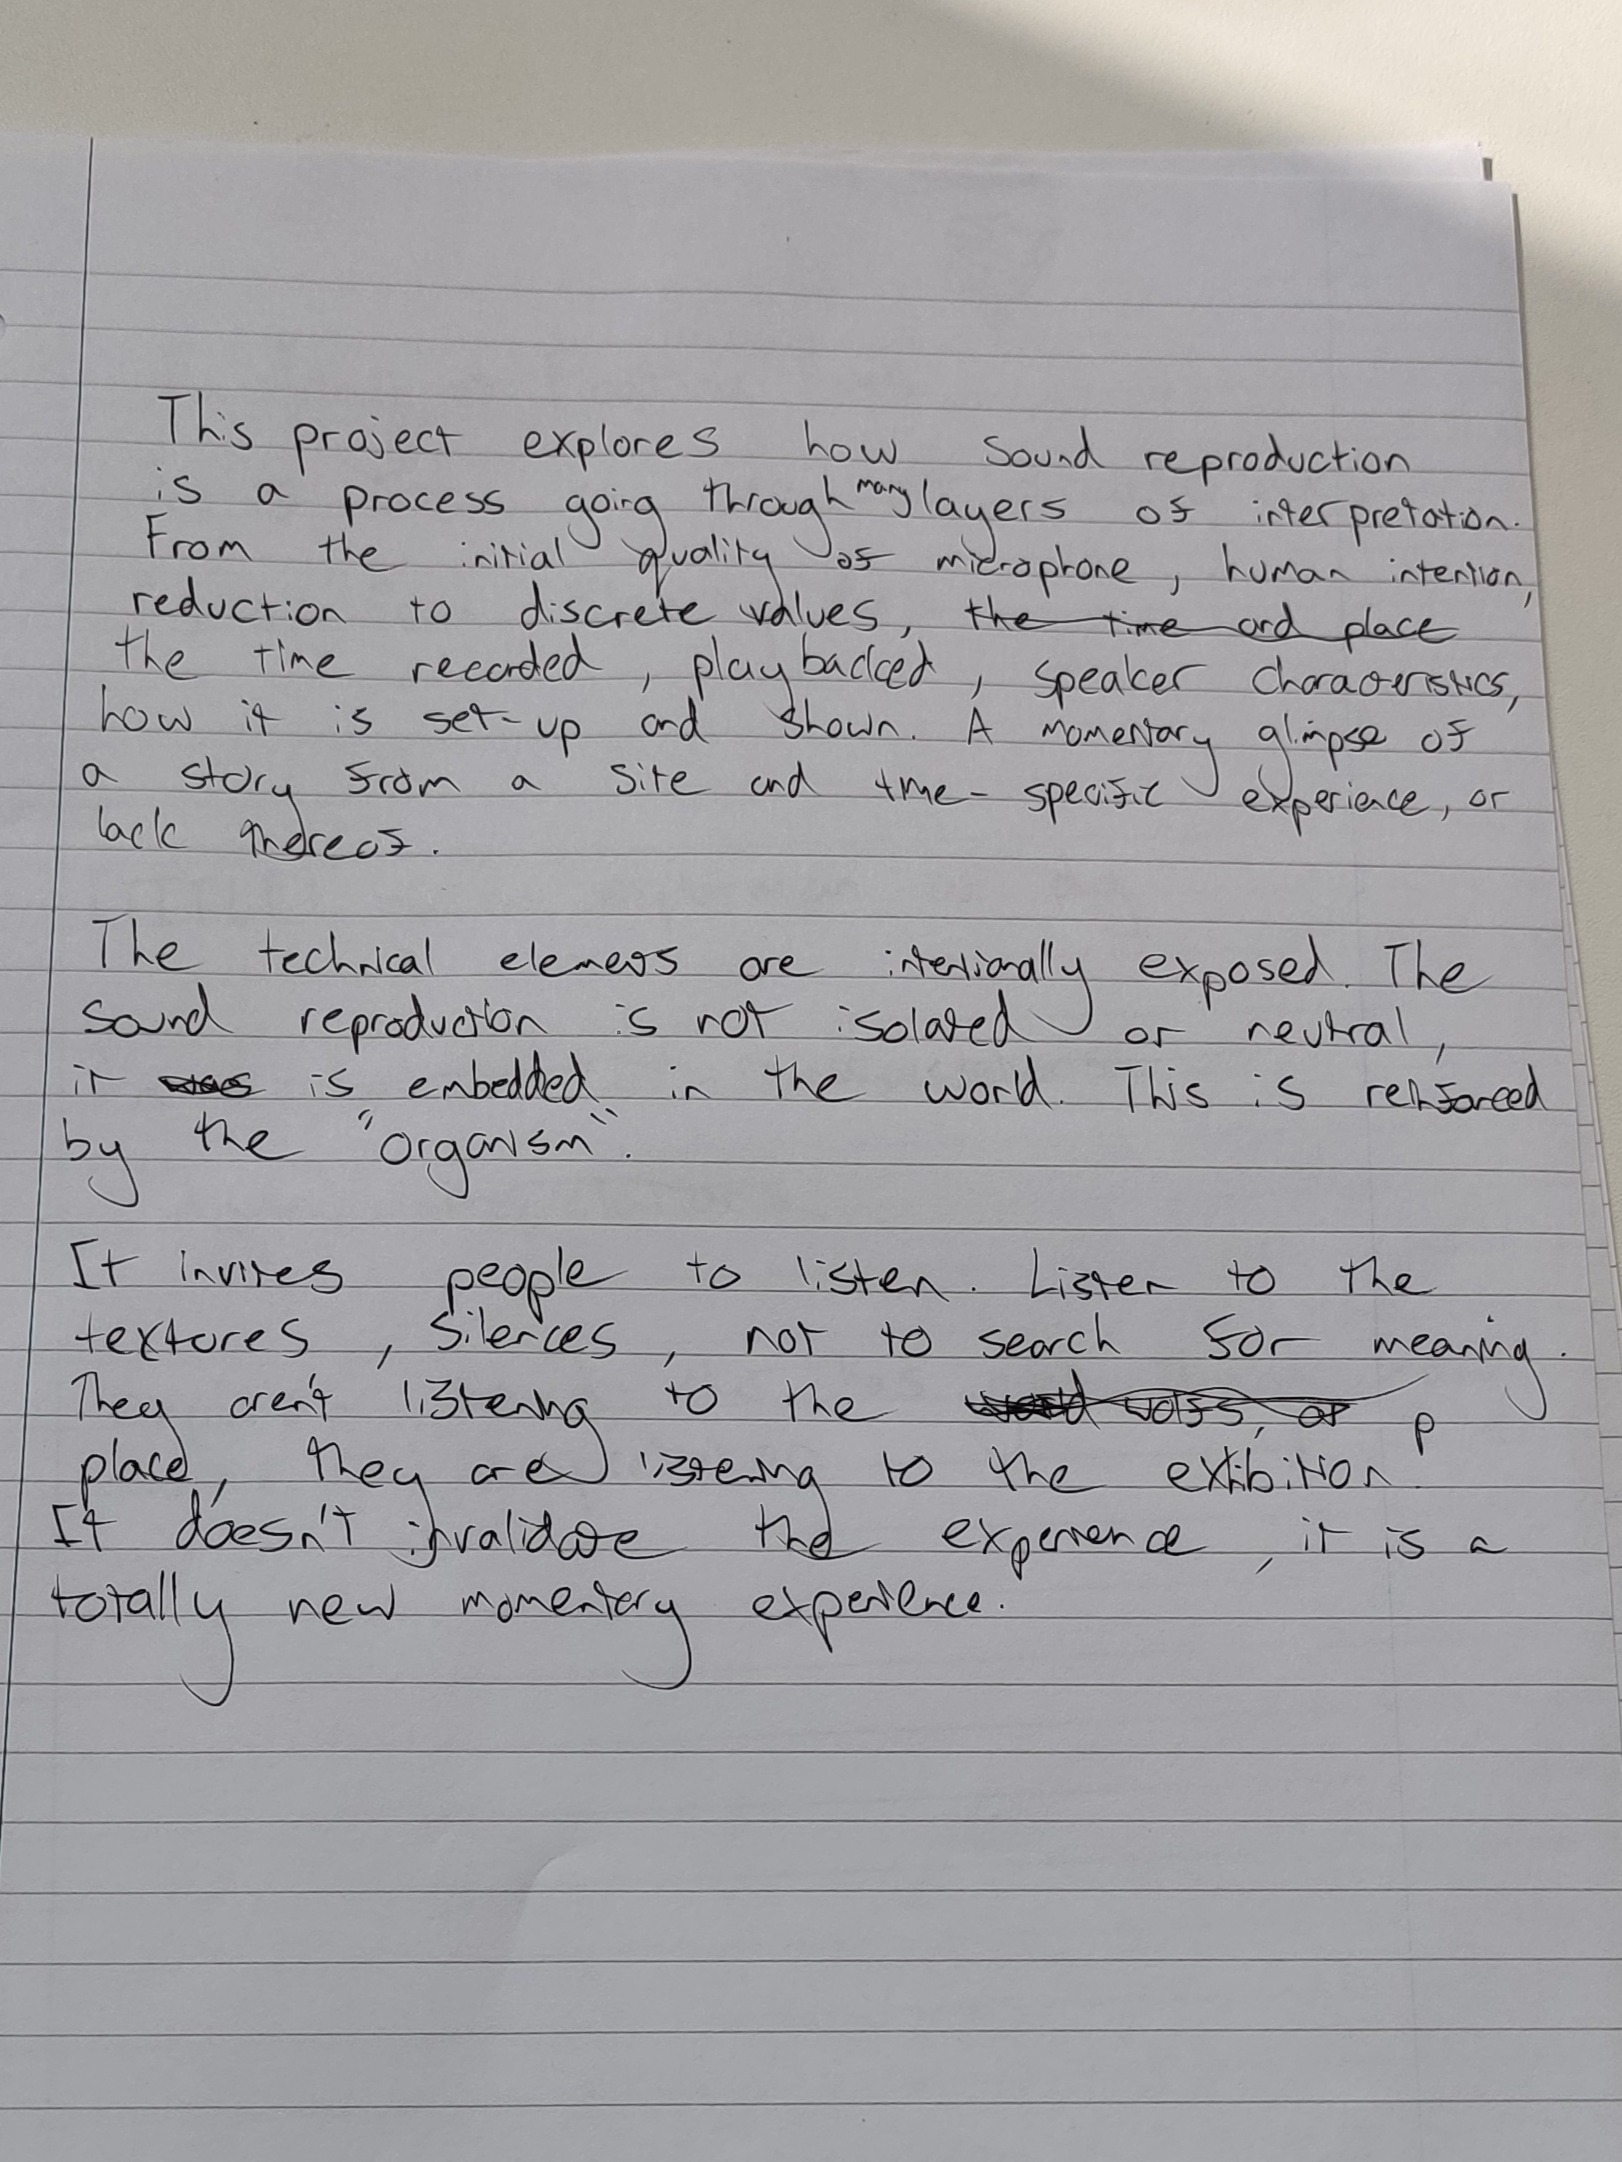 This project explores how sound reproduction
is a process going through many layers of interpretation.
From the initial quality of microphone, human intention,
reduction to discrete values, the time and place
the time recorded, playbacked, speaker characteristics,
how it is set-up and shown. A momentary glimpse of
a story from a site and time-specific experience, or
lack thereof.
The technical elements are intentionally exposed. The
sound reproduction is not isolated or neutral,
it was is embedded in the world. This is reinforced
by the "organism".
It invites people to listen. Listen to the
textures, silences, not to search for meaning.
They aren't listening to the p
place, they are listening to the exhibition.
It doesn't invalidate the experience, it is a
totally new momentary experience.